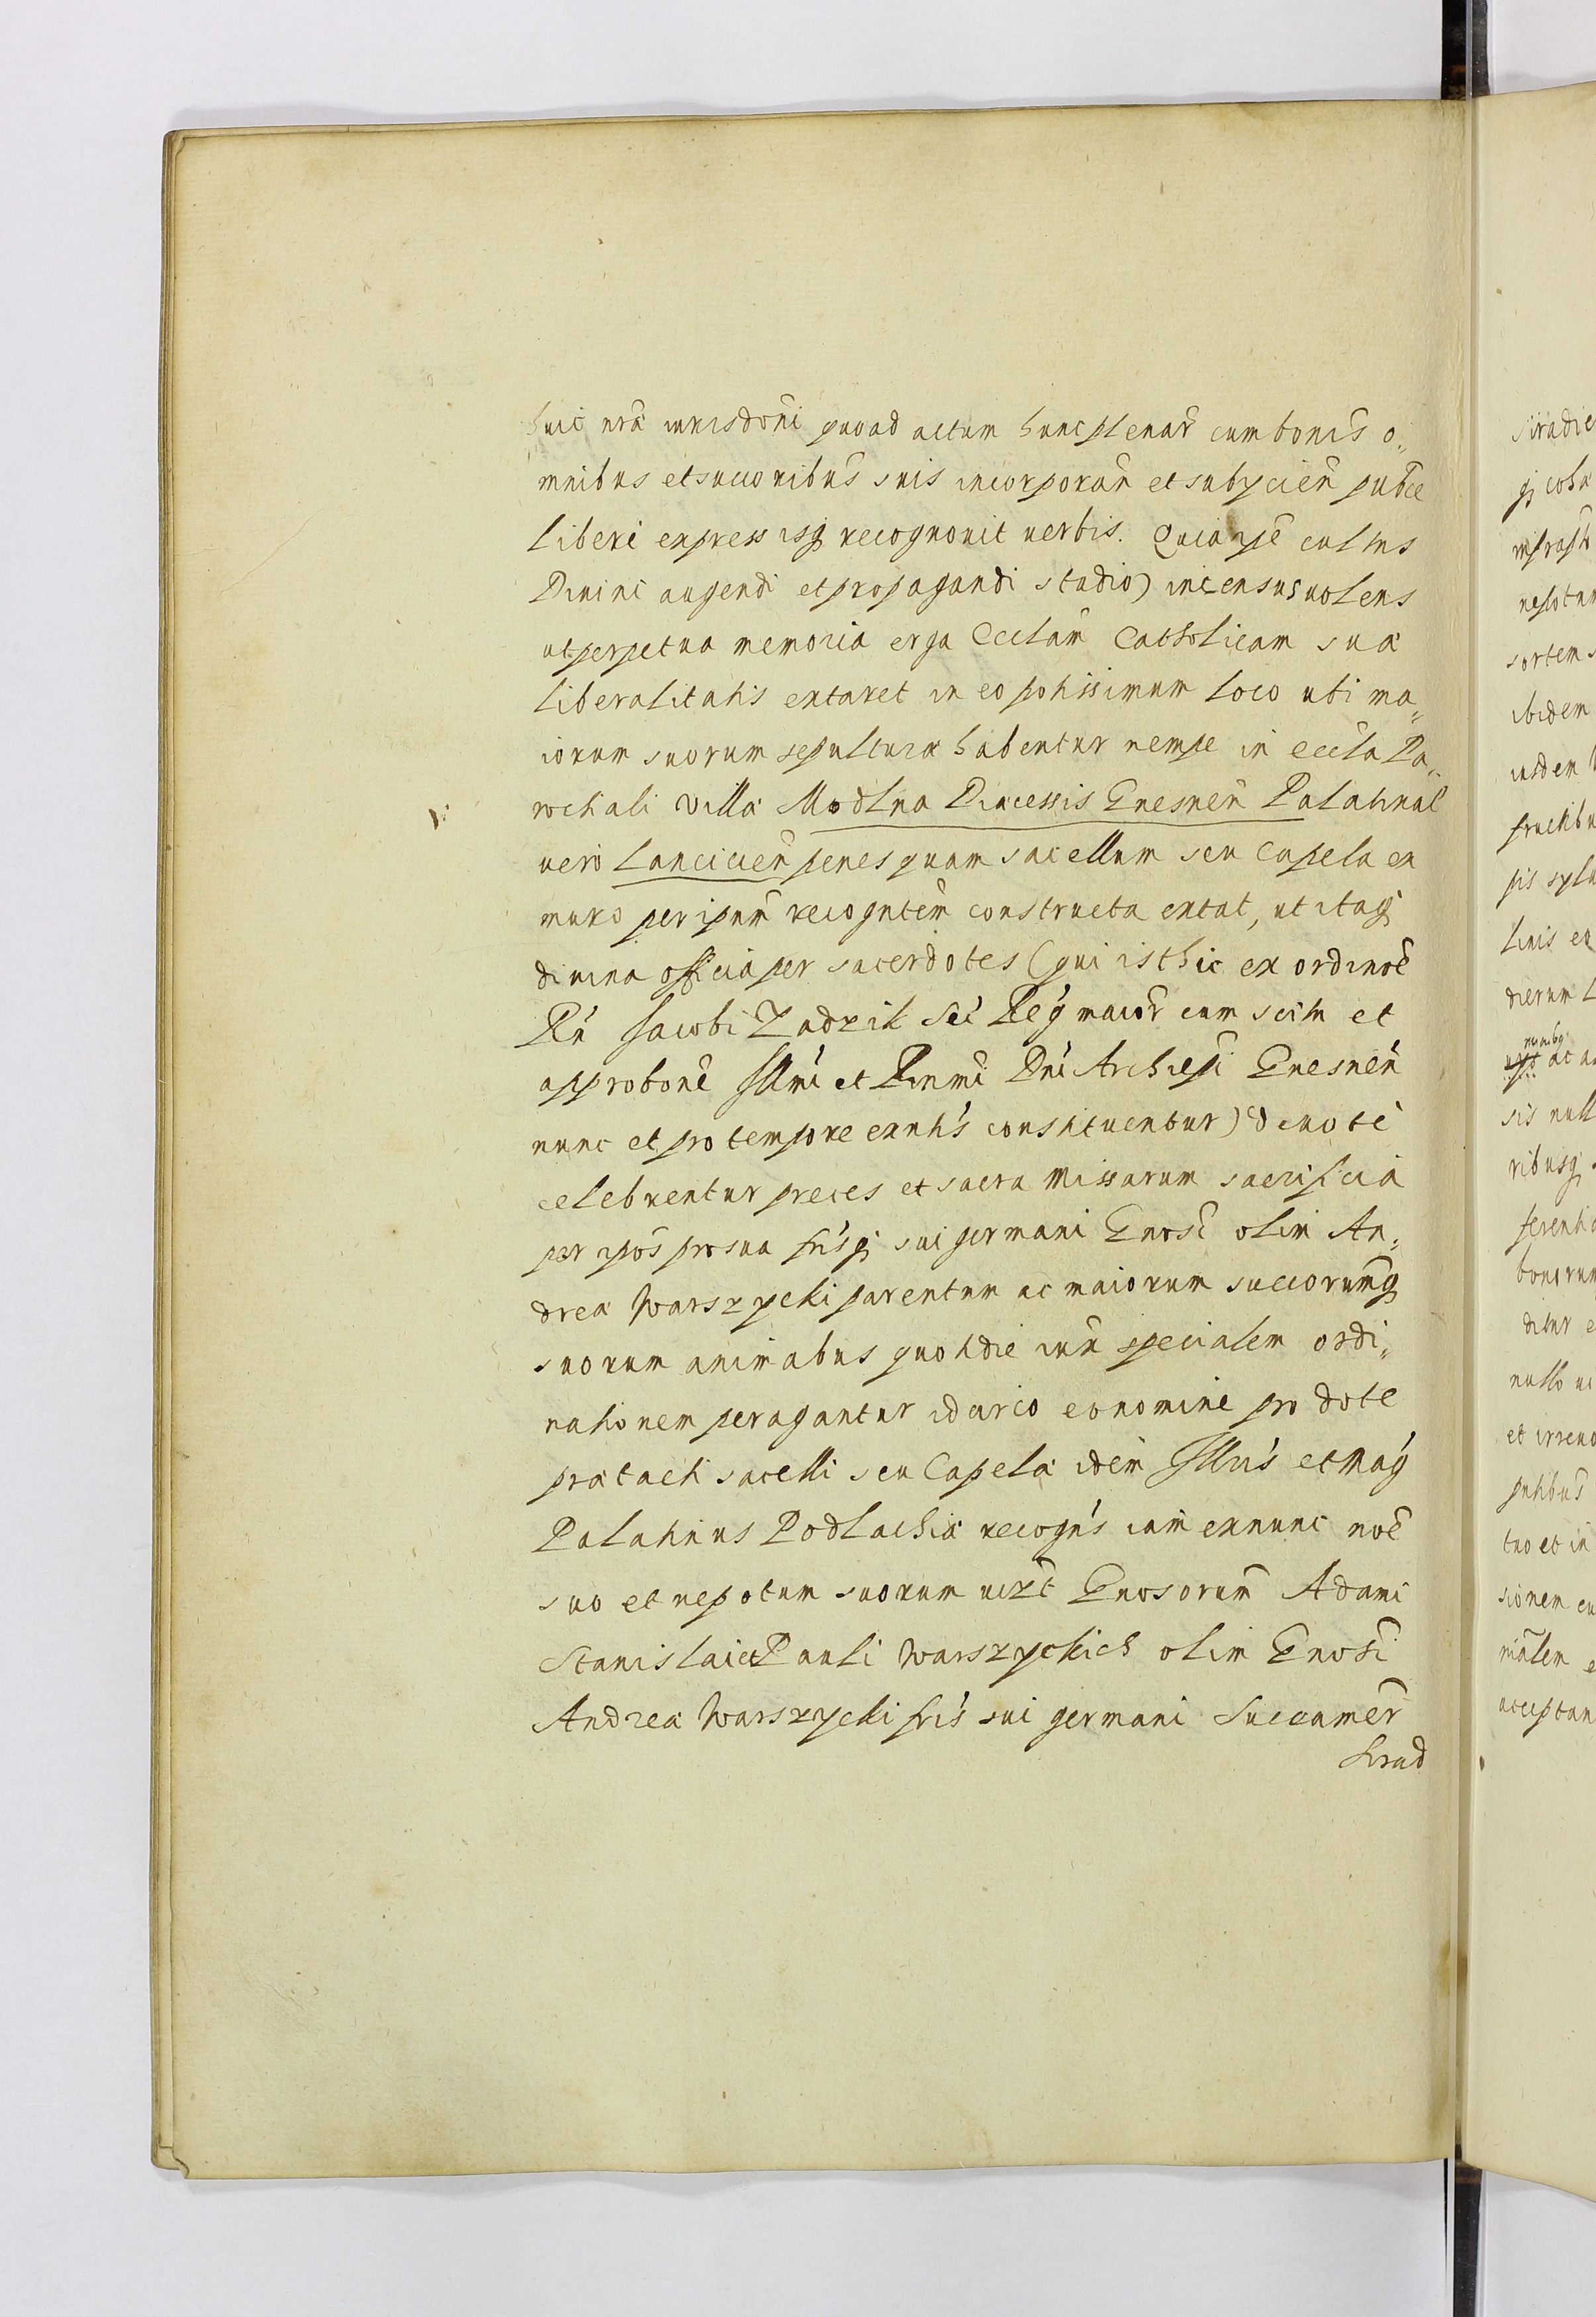 huic nrã iurisdõni quoad actum hunc plenar̃ cum bonis o„
mnibus et succoribus̃ suis incorporan̄ et subycień pub̃ce
liberè express isq̨ recognovit verbis. Quia ipẽ cultus
Divini augendi et propagandi studio) incensus volens
ut perpetua memoria erga Ecclam̃ Catholicam suà
liberalitatis extaret in eo potissimum loco ubi ma„
iorum suorum sepultura habentur nempe in eccla Pa„
rochali villà Modlna Diaecessis Gnesneñ Palatinat̃
verò Lancicień penes quam sacellum seu Capela ex
muro per ipum̃ recognt̃em constructa extat, ut itaq̨
divina officia per sacerdotes (qui isthic ex ordinõe
Rñ Jacobi Zadzik Sui Reg̃ maior̃ cum scitu et
approbonẽ Illmi et Rmmi Dni Archiepĩ Gnesneñ
nunc et pro tempore exnt̃is constituentur) devotè
celebrentur preces et sacra Missarum sacrificia
per ipõs pro sua fris̃q̨ sui germani Gnosĩ olim An„
dreà Warszycki parentum ac maiorum succorumq̨
suorum animabus quotidie iux̃ specialem ordi„
nationem peragantur idcirco eo nomine pro dote
prætacti sacelli seu Capelà idem Illris et Mag̃
Palatinus Podlachià recogns̃ iam ex nunc noẽ
suo et nepotum suorum vizt Gnosorum̃ Adami
Stanislai et Pauli Warszyckich olim Gnosĩ
Andreà Warszycki fris̃ sui germani Succamer̃
Sirad
siradie
q̨
infrap
nepotum
sortem s
ibidem
iusdem
fructibu
pis sylu
linis
dierum L
ac
sis null
ribusq̨
ferentia
bonorum
ditur e
nullo
et irrevo
tuo et in
sionem
acceptan